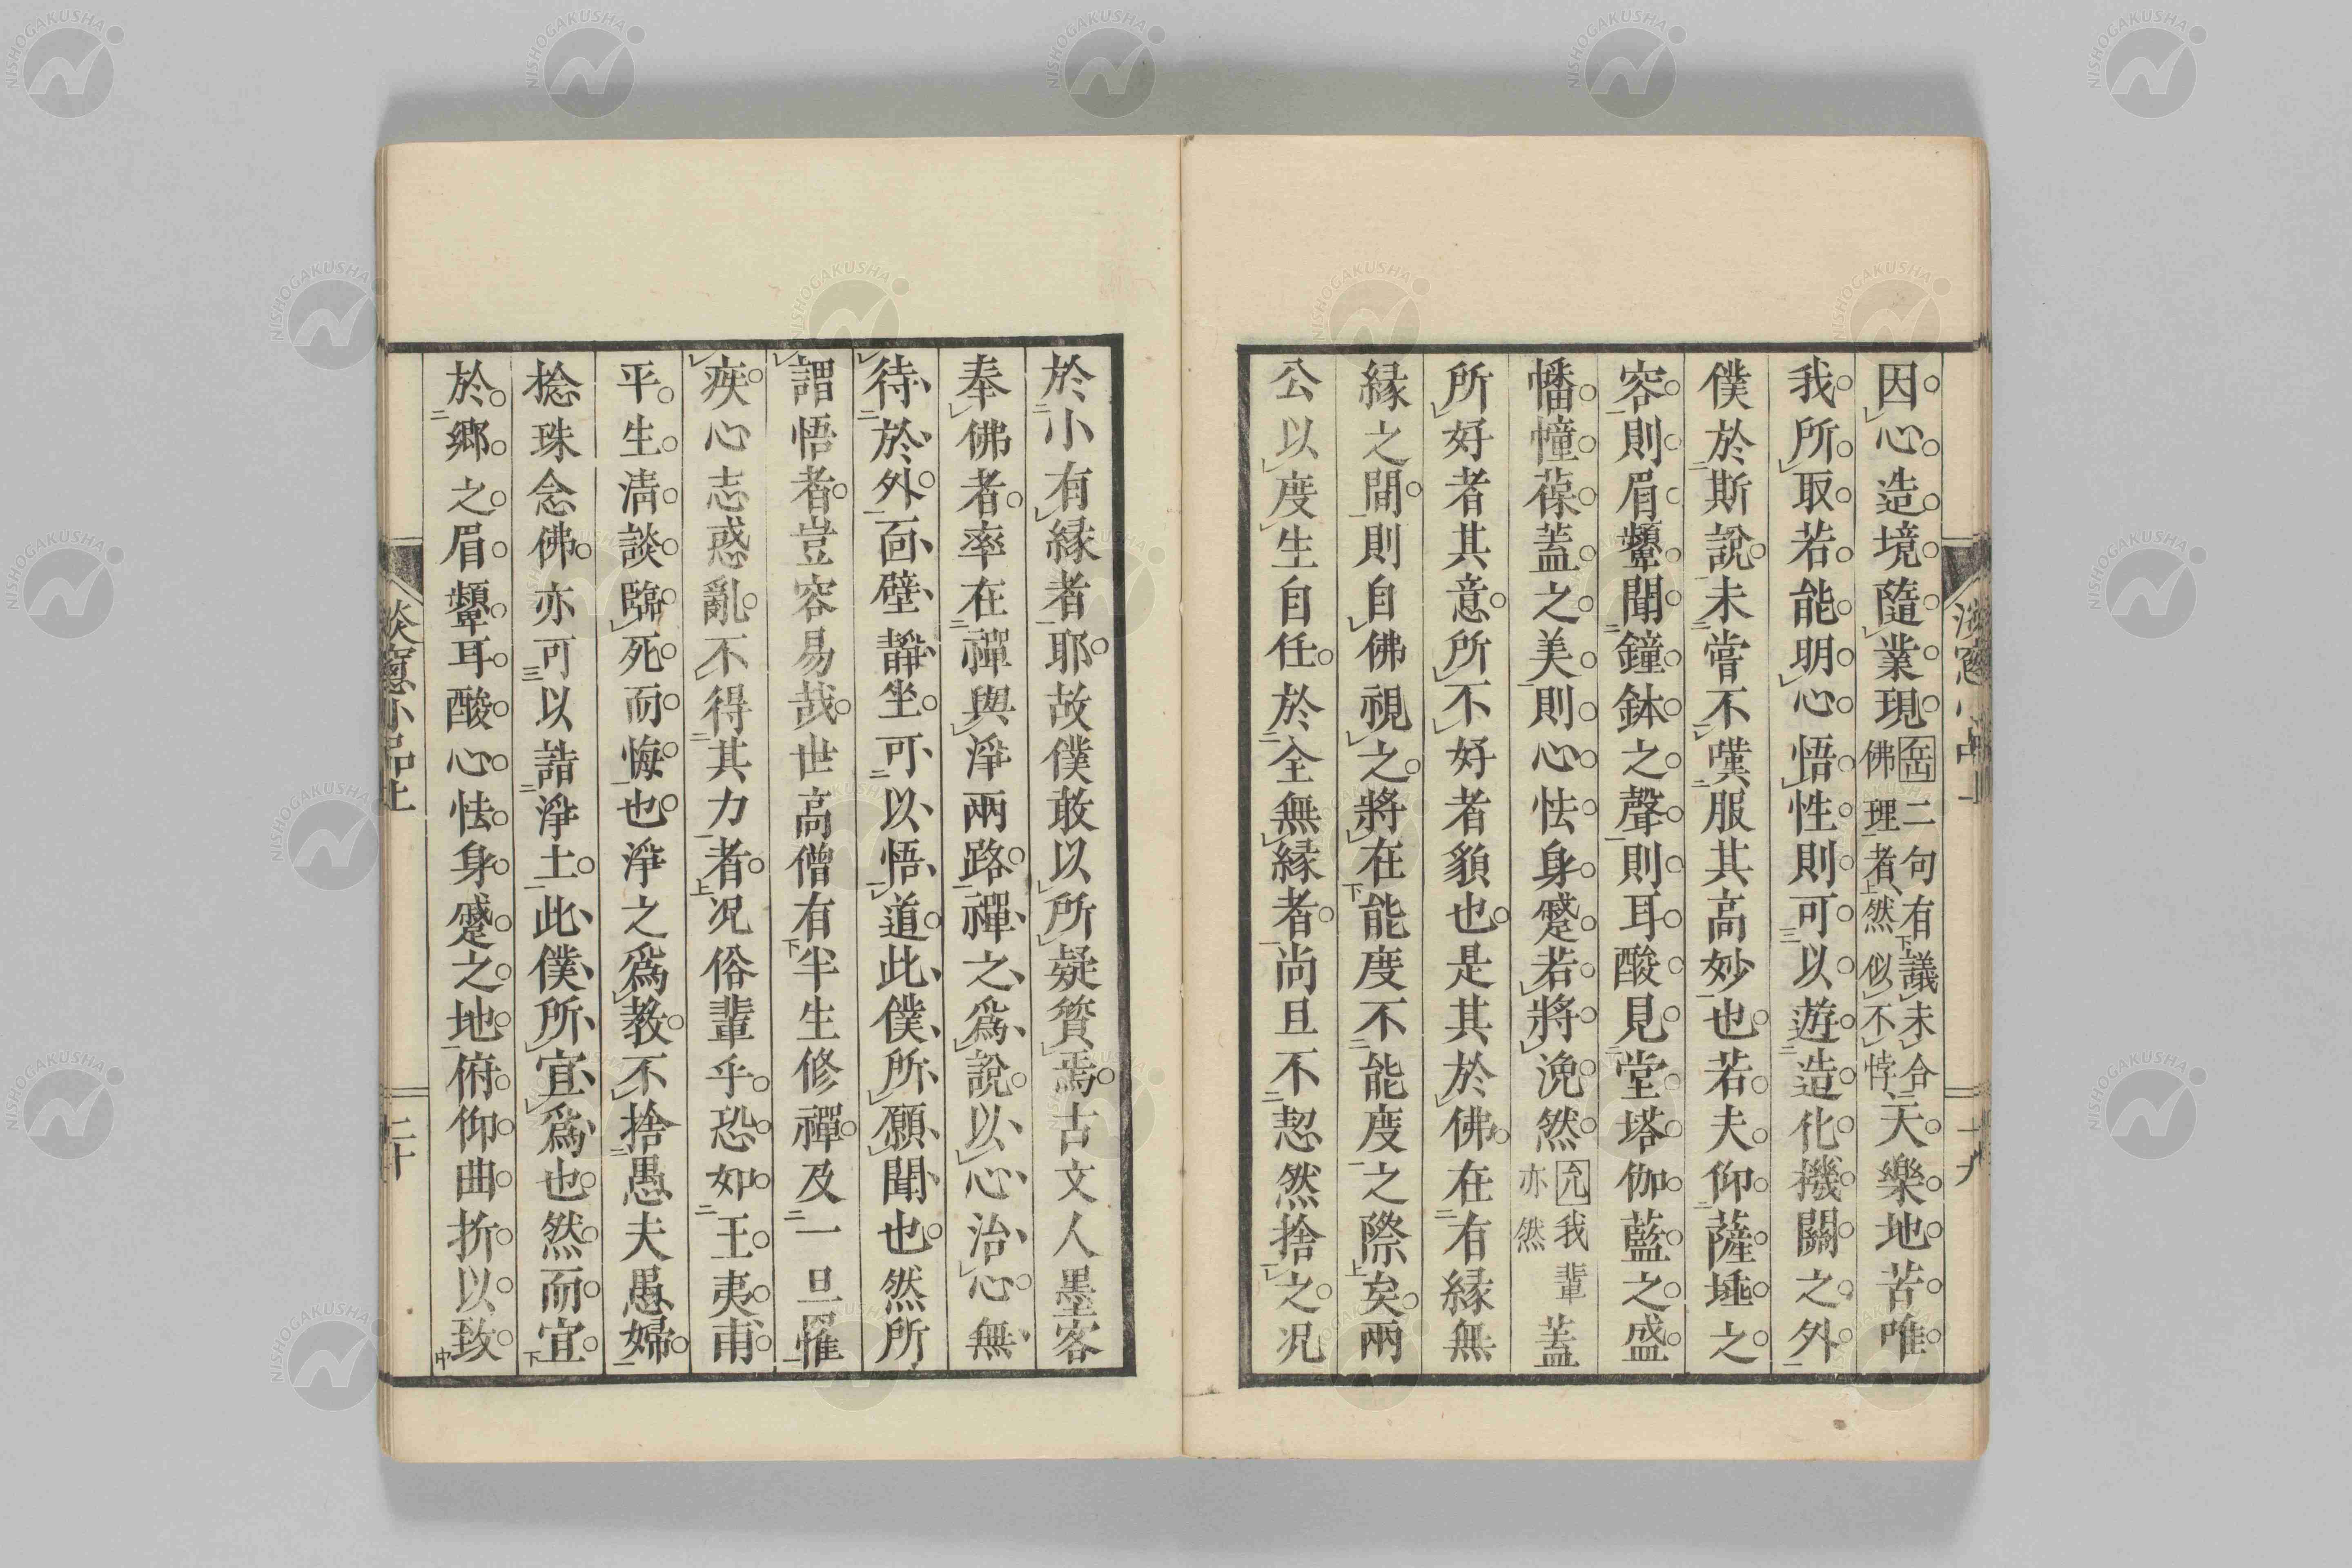 因心造境隨業現岳二句有議未合佛理者然似不悖天樂地苦唯
我所取若能明心悟性則可以遊造化機關之外
僕於斯說未嘗不嘆服其高妙也若夫仰薩埵之
容則眉顰聞鐘鉢之聲則耳酸見堂塔伽藍之盛
幡幢葆蓋之美則心怯身蹙若將浼然允我輩亦然蓋
所好者其意所不好者貌也是其於佛在有緣無
緣之間則自佛視之將在能度不能度之際矣兩
公以度生自任於全無緣者尚且不恝然捨之況
於小有緣者耶故僕敢以所疑質焉古文人墨客
奉佛者率在禪與淨兩路禪之爲說以心治心無
待於外面壁靜坐可以悟道此僕所願聞也然所
謂悟者豈容易哉世高僧有半生修禪及一旦罹
疾心志惑亂不得其力者況俗輩乎恐如王夷甫
平生淸談臨死而悔也淨之爲教不捨愚夫愚婦
捻珠念佛亦可以詣淨土此僕所宜爲也然而宜
於鄉之眉顰耳酸心怯身蹙之地俯仰曲折以致
淡窻小品上
二十
十九
NISHOGAKUSHA